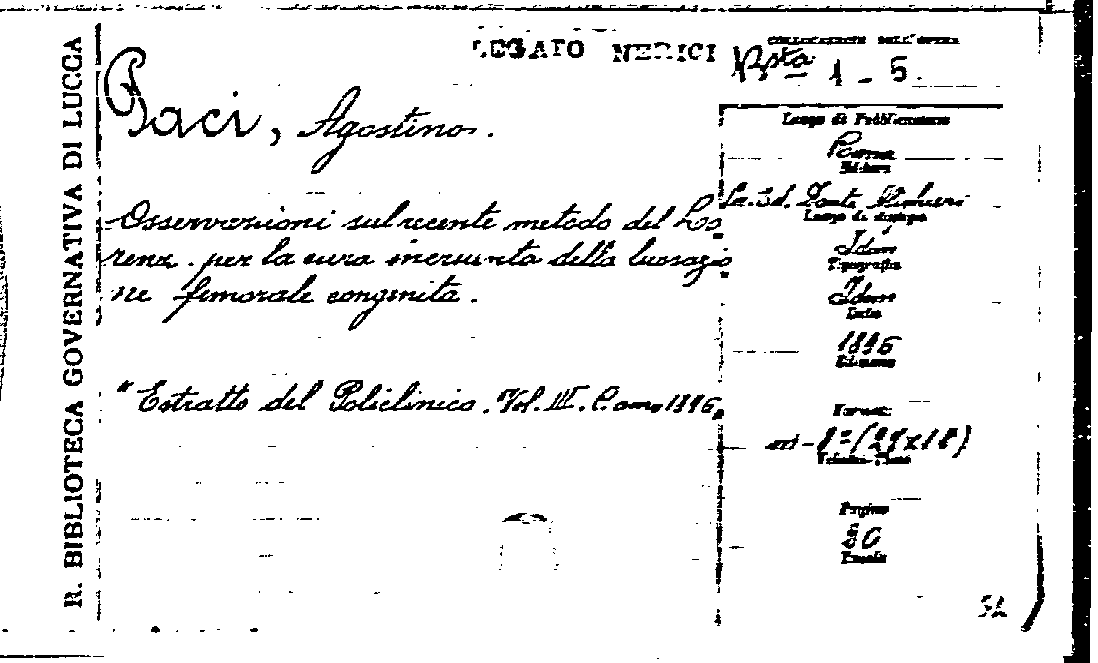 R. BIBLIOTECA GOVERNATIVA DI LUCCA
LEGATO NERICI
COLLOCAZIONE DELL'OPERA
Bsta 1-5.
Paci, Agostino.
Osservazioni sul recente metodo del Lo
renz. per la cura incruenta della lussazio
ne femorale congenita.
"Estratto del Policlinico. Vol. III. C. anno 1896"
Luogo di Pubblicazione
Roma
Editore
So. Ed. Dante Alighieri
Luogo di stampa
Idem
Tipografia
Idem
Data
1896
Edizione
Formato
in-8º (27x18)
Pagine
30
52